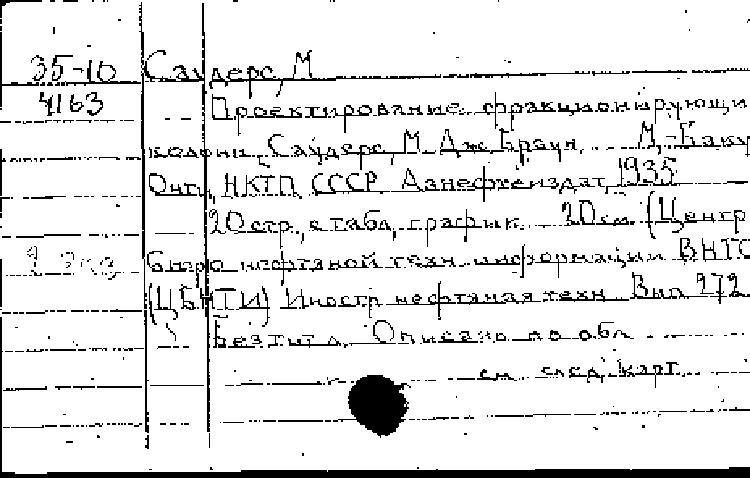 35-10 Саудерс, М
4163 Проектирование фракционирующи
колонн, Саудерс, М. Дж. Браун. М.-Баку
Онти, НКТП СССР Азнефтеиздат, 1935
20 стр., с табл., график. 20 см (Центр
2 экз бюро нефтяной техн. информации ВНТО
(ЦБНТИ) Иностр. нефтяная техн. Вып. 272
Без тит. л. Описано по обл.
см. след. карт.